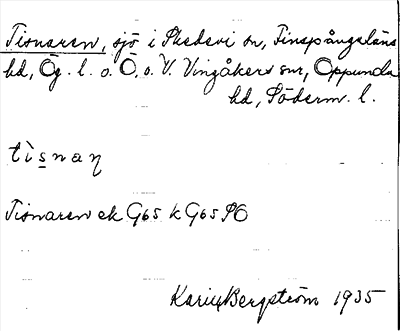 Tisnaren, sjö i Skedevi sn, Finspångaläns
hd, Ög. l. o. Ö. o. V. Vingåkers snr, Oppunda
hd, Söderm. l.
tìsnaŋ
Tisnaren ek G65 k G65 SO
Bergström 1935